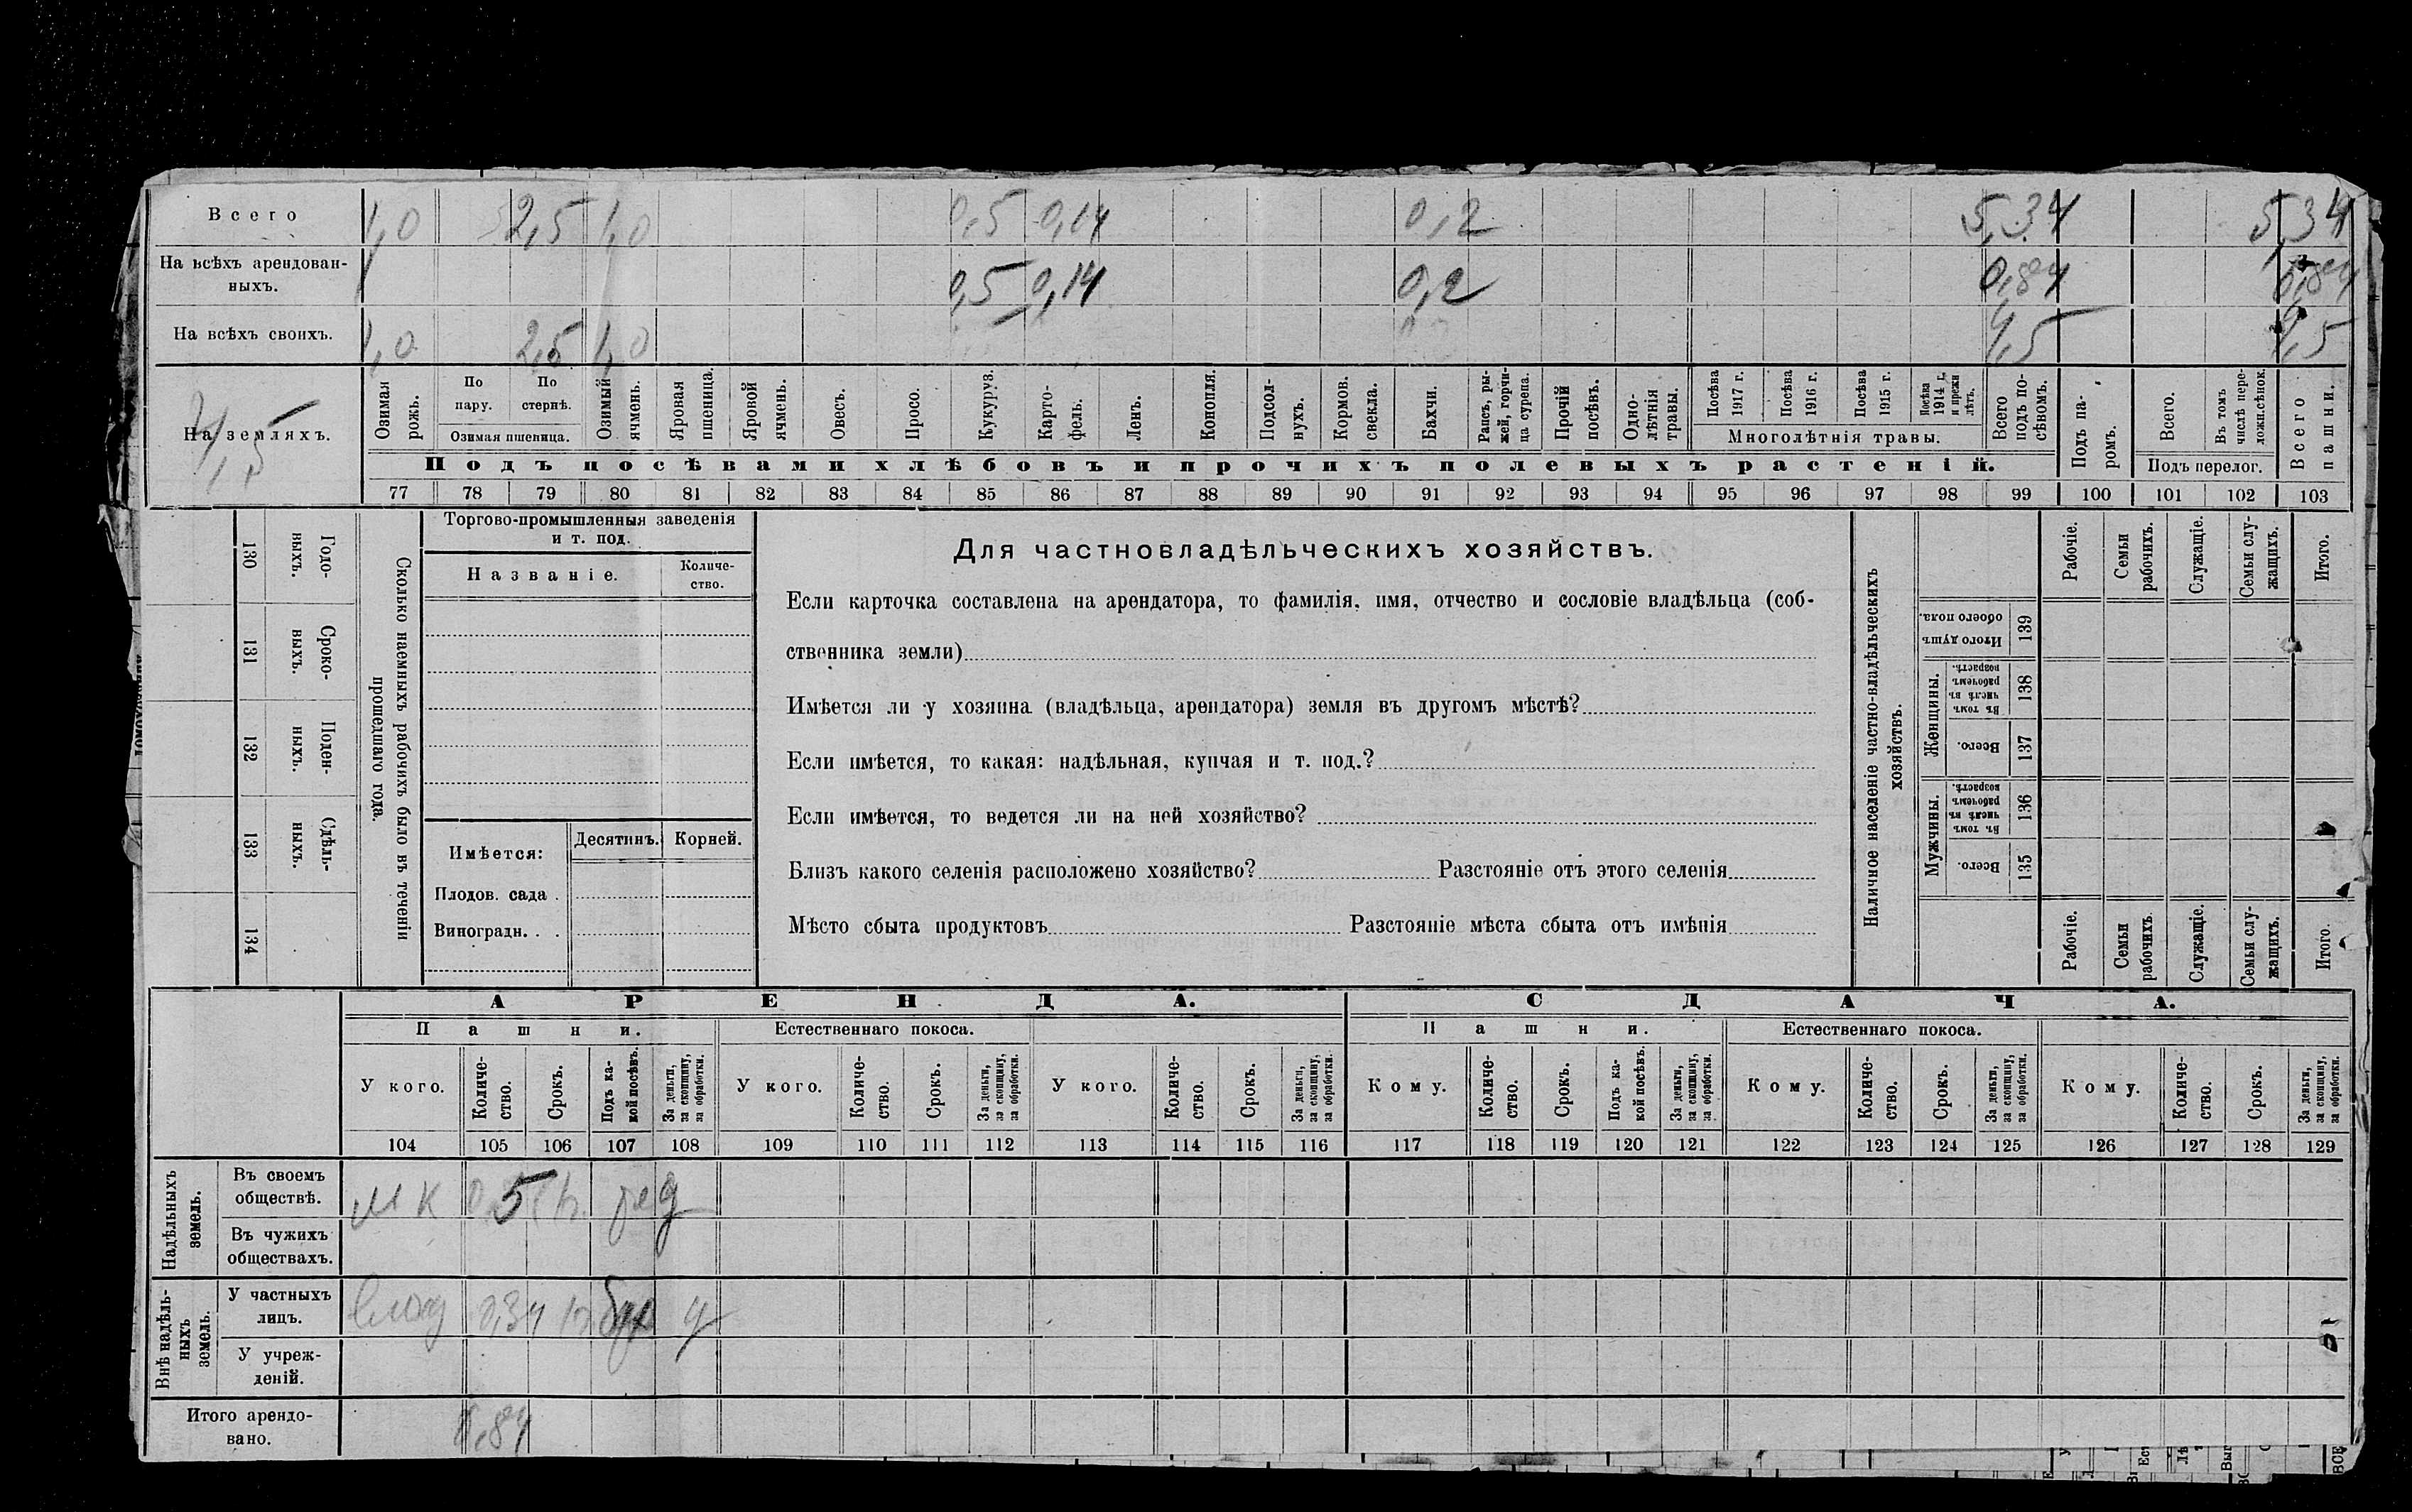 Всего 1,0 2,5 1,0 0,5 0,14 0,2 5,34 5,34
На всѣхъ арендован-
ныхъ. 0,5 0,14 0,2 0,84 0,84
На всѣхъ своихъ. 1,0 2,5 1,0 4,5 4,5
На земляхъ. 4,5
Озимая рожь.
По пару.
По стернѣ.
Озимая пшеница.
Озимый ячмень.
Яровая пшеница.
Яровой ячмень.
Овесъ.
Просо.
Кукуруз.
Карто-
фель.
Ленъ.
Конопля.
Подсол-
нухъ.
Кормов. свекла.
Бахчи.
Рапсъ, ры-
жей, горчи-
ца сурепа.
Прочій посѣвъ.
Одно-
лѣтнія травы.
Посѣва 1917 г.
Посѣва 1916 г.
Посѣва 1915 г.
Посѣва 1914 г. и прежн лѣтъ.
Многолѣтнія травы.
Всего подъ по-
сѣвомъ.
Подъ па-
ромъ.
Всего.
Въ томъ числѣ пере-
ложн.сѣнок.
Подъ перелог.
Всего пашни.
Подъ посѣвами хлѣбовъ и прочихъ полевыхъ растеній.
77 78 79 80 81 82 83 84 85 86 87 88 89 90 91 92 93 94 95 96 97 98 99 100 101 102 103
130 Годо-
выхъ.
131 Сроко-
выхъ.
132 Поден-
ныхъ.
133 Сдѣль-
ныхъ.
134
Сколько наемныхъ рабочихъ было въ теченіи
прошедшаго года.
Торгово-промышленныя заведенія
и т. под.
Названіе.
Количе-
ство.
Имѣется:
Десятинъ.
Корней.
Плодов. сада .
Виноградн. . .
Для частновладѣльческихъ хозяйствъ.
Если карточка составлена на арендатора, то фамилія, имя, отчество и сословіе владѣльца (соб-
ственника земли)
Имѣется ли у хозяина (владѣльца, арендатора) земля въ другомъ мѣстѣ?
Если имѣется, то какая: надѣльная, купчая и т. под.?
Если имѣется, то ведется ли на ней хозяйство?
Близъ какого селенія расположено хозяйство? Разстояніе отъ этого селенія
Мѣсто сбыта продуктовъ Разстояніе мѣста сбыта отъ имѣнія
Наличное населеніе частно-владѣльческихъ
хозяйствъ.
Рабочіе.
Семьи рабочихъ.
Служащіе.
Семьи слу-
жащихъ.
Итого.
Итого душъ обоего пола. 139
Женщины.
Въ томъ числѣ въ рабочемъ возрастѣ. 138
Всего. 137
Мужчины.
Въ томъ числѣ въ рабочемъ возрастѣ. 136
Всего. 135
Рабочіе.
Семьи рабочихъ
Служащіе.
Семьи слу-
жащихъ.
Итого.
АРЕНДА. СДАЧА.
Пашни. Естественнаго покоса. Пашни. Естественнаго покоса.
У кого.
Количе-
ство.
Срокъ.
Подъ ка-
кой посѣвъ.
За деньги, за скопщину, за обработки.
У кого.
Количе-
ство.
Срокъ.
За деньги, за скопщину, за обработки.
У кого.
Количе-
ство.
Срокъ.
За деньги, за скопщину, за обработки.
Кому.
Количе-
ство.
Срокъ.
Подъ ка-
кой посѣвъ.
За деньги, за скопщину, за обработки.
Кому.
Количе-
ство.
Срокъ.
За деньги, за скопщину, за обработки.
Кому.
Количе-
ство.
Срокъ.
За деньги, за скопщину, за обработки.
104 105 106 107 108 109 110 111 112 113 114 115 116 117 118 119 120 121 122 123 124 125 126 127 128 129
Надѣльныхъ
земель.
Въ своемъ
обществѣ. м к 0,5
Въ чужихъ
обществахъ.
Внѣ надѣль-
ныхъ
земель.
У частныхъ
лицъ. 0,34
У учреж-
деній.
Итого арендо-
вано. 0,84